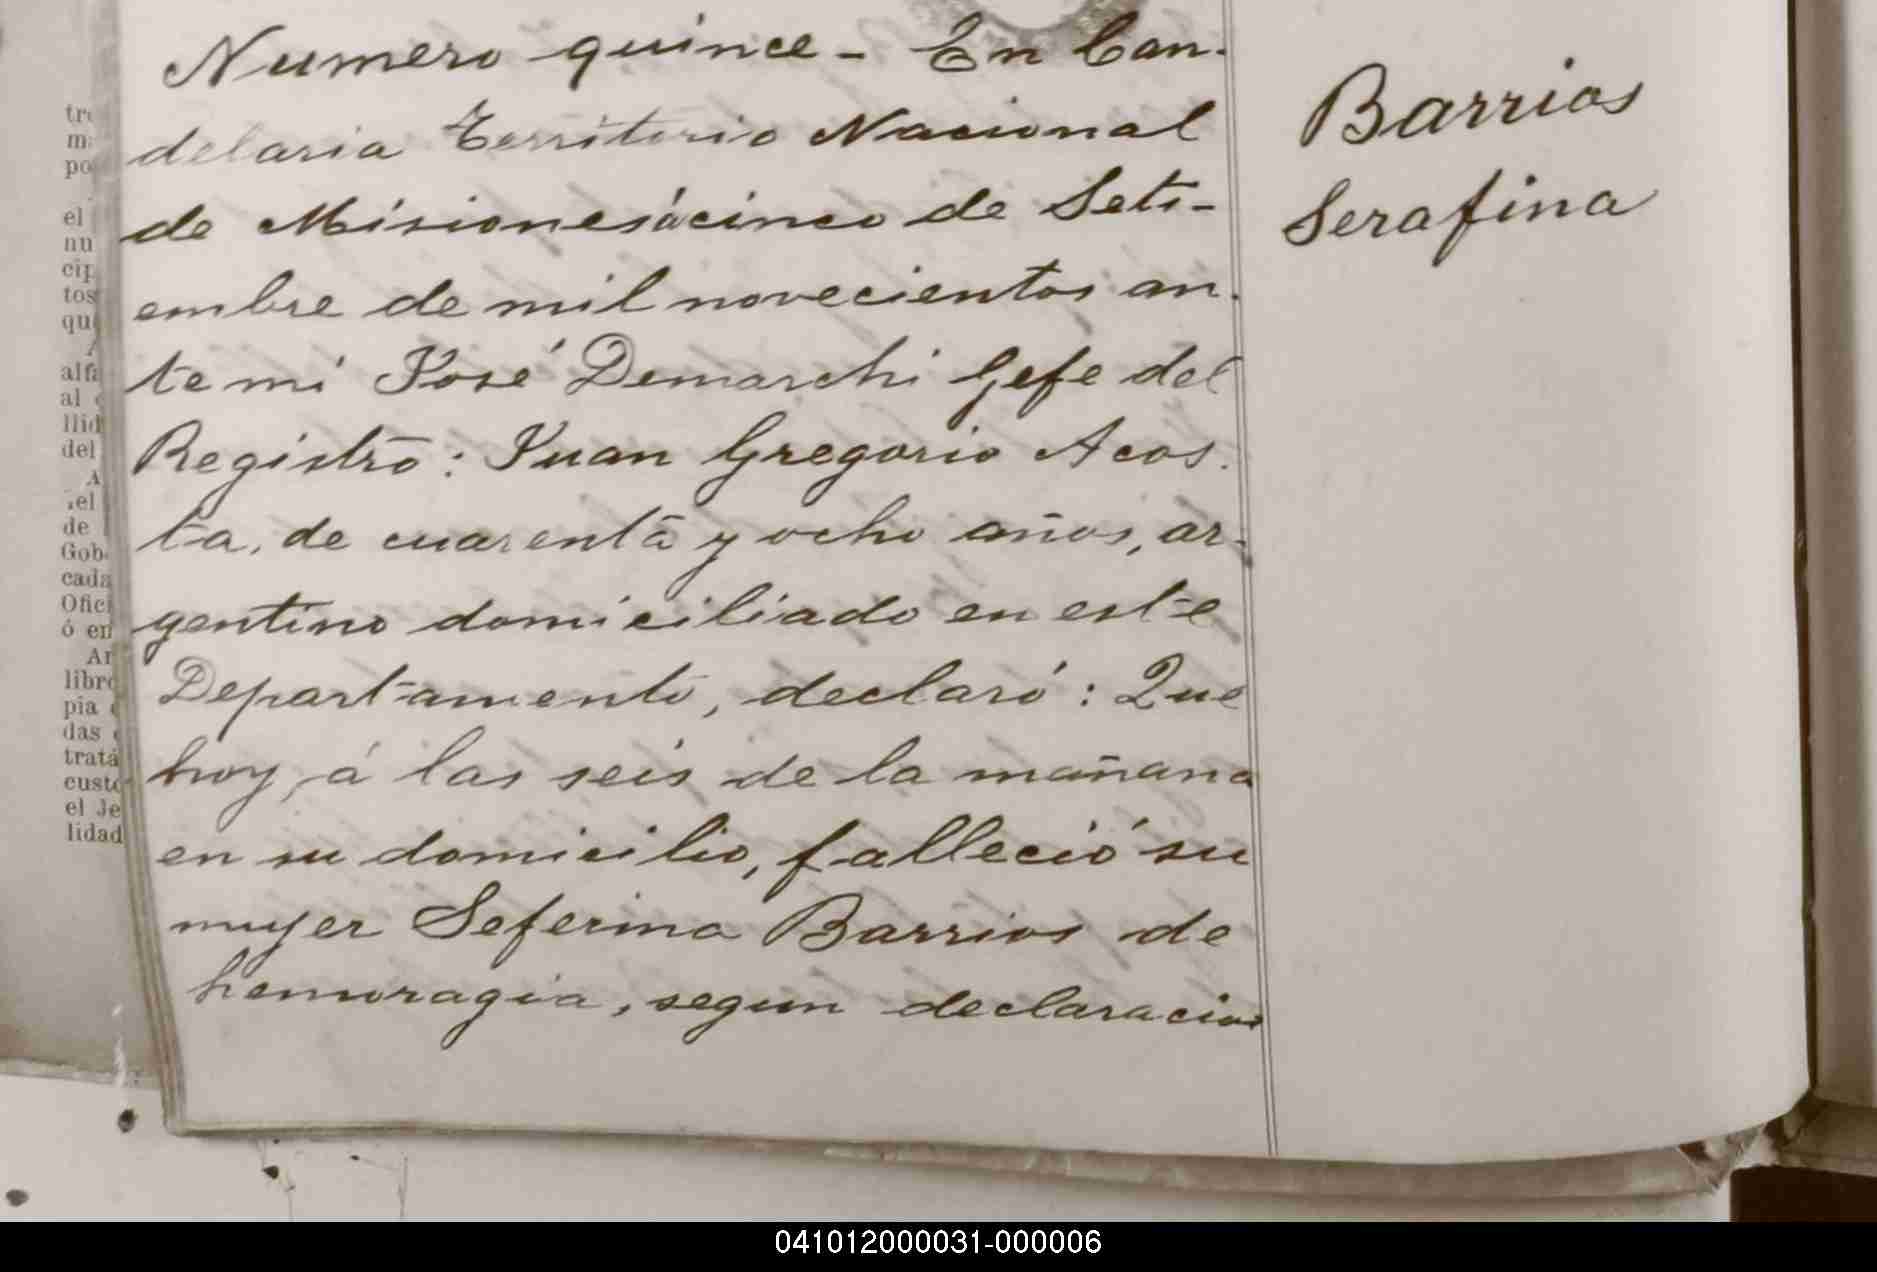 Numero quince - En Can-
delaria Territorio Nacional
de Misiones á cinco de Seti-
embre de mil novecientos an-
te mi José Demarchi Gefe del
Registro: Juan Gregorio Acos-
ta, de cuarenta y ocho años, ar-
gentino domiciliado en este
Departamento, declaró: Que
hoy, á las seis de la mañana
en su domicilio, falleció su
mujer Seferina Barrios de
hemoragia, segun declaracion
Barrios
Serafina
po
el
nu
cip
tos
qu
alfa
al
llid
del
A
el
de
Gob
cada
Ofici
ó en
Ar
libro
pia
das
tratá
custo
el Je
lidad
041012000031-000006